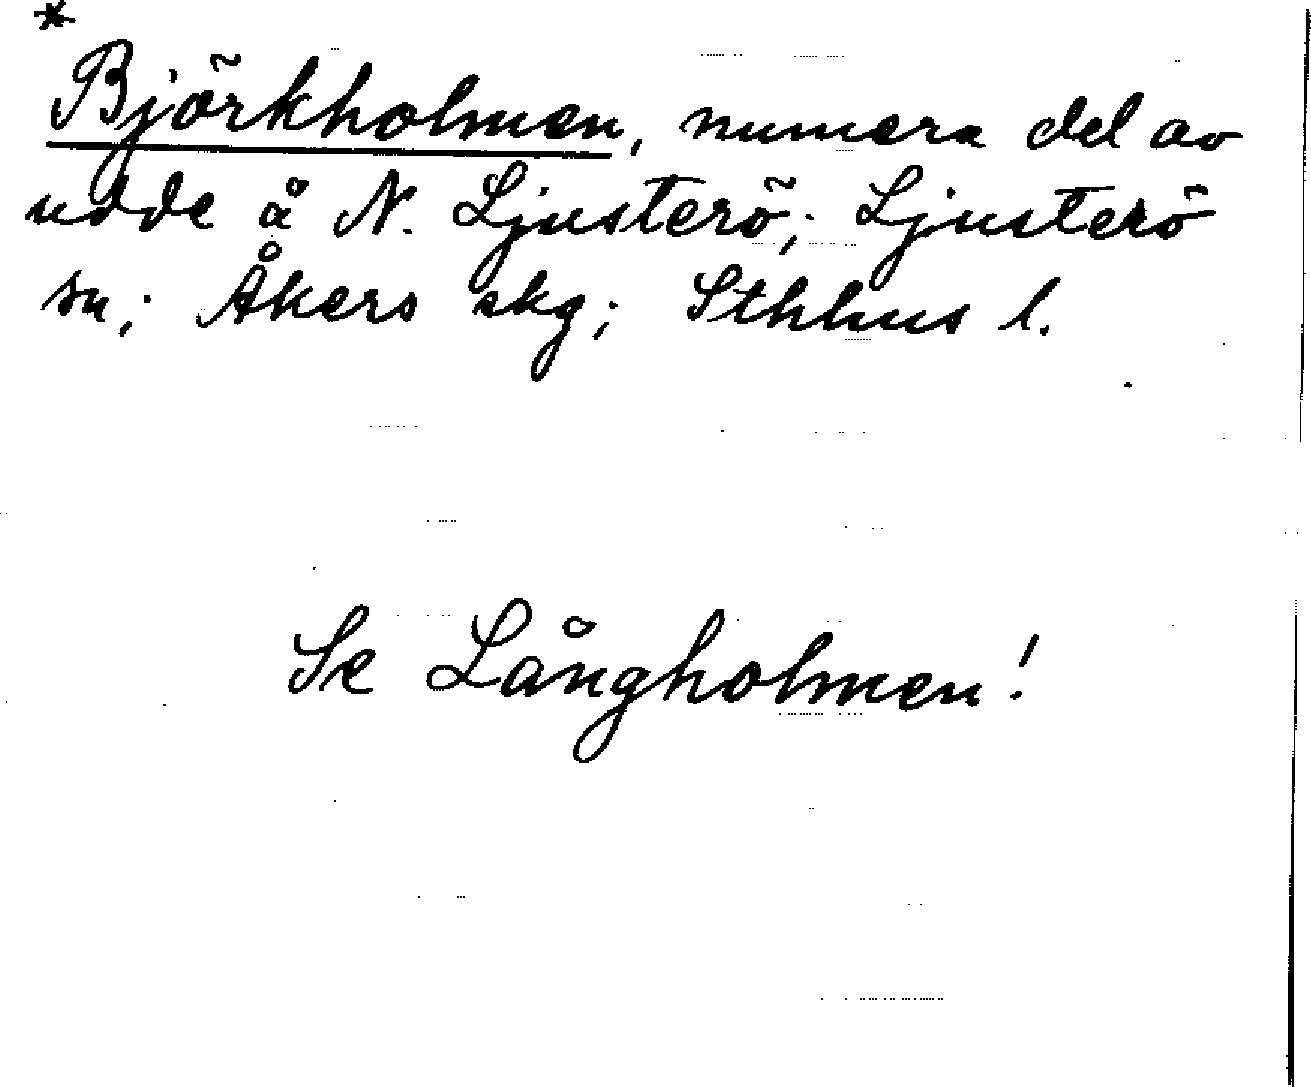 *
Björkholmen, numera del av
udde å N. Ljusterö; Ljusterö
sn; Åkers skg; Sthlms l.
Se Långholmen!